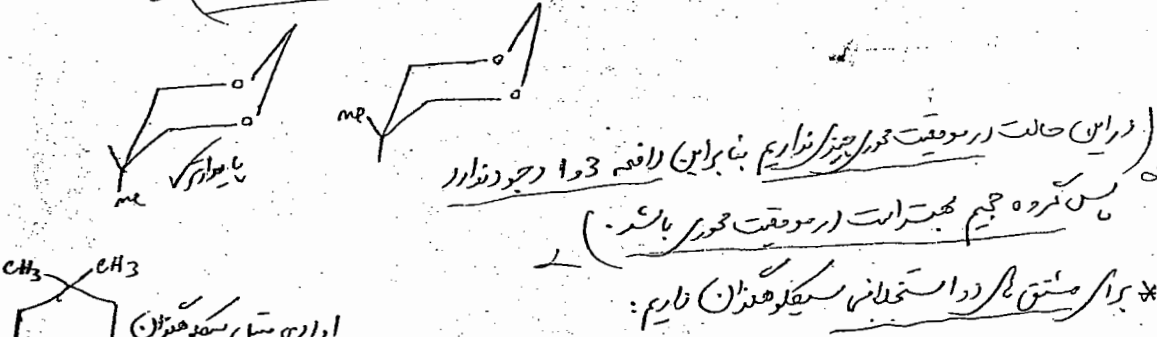 o o
me
o o
me
پایدارتر ✓
(در این حالت در موقعیت محوری چیزی نداریم بنابراین دافعه 3و1 وجود ندارد
پس گروه حجیم بهتر است در موقعیت محوری باشد.)
* برای مشتق های دو استخلافی سیکلوهگزان داریم:
CH3 CH3
سیکلوهگزان